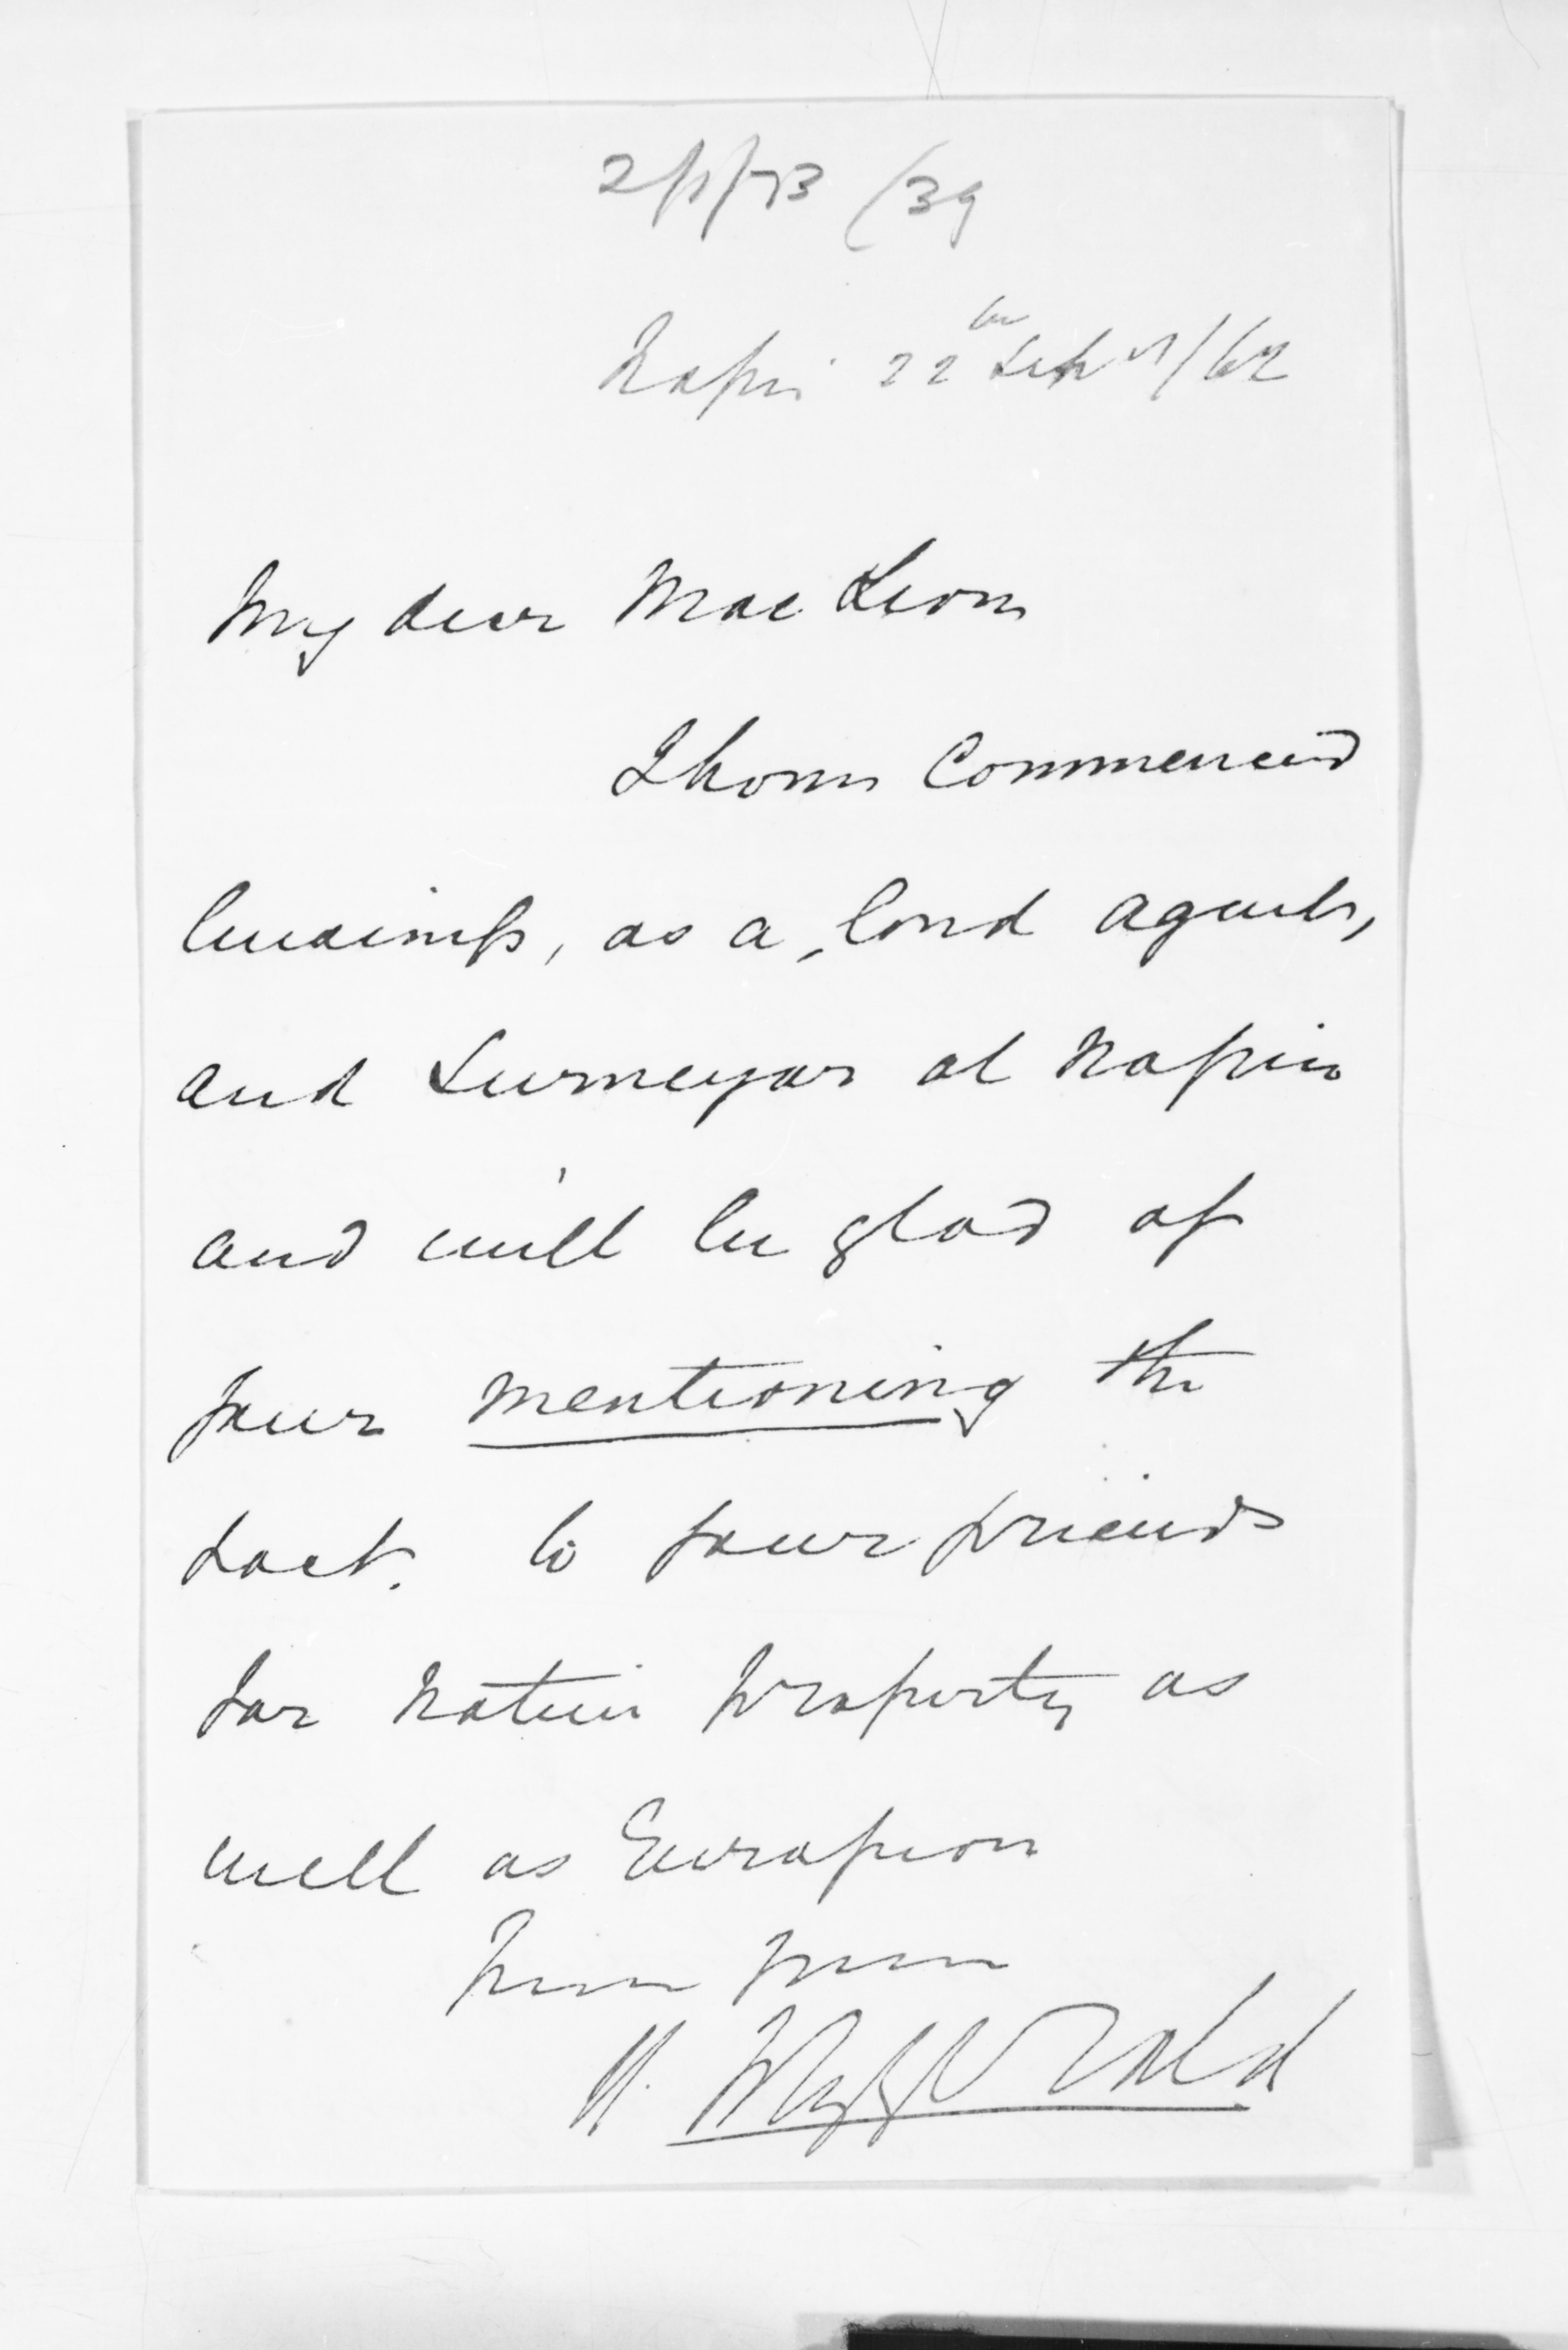 Napier 22 Sepr/62
My dear MacLean
I have Commenced
business, as a, land agent,
and Surveyor at Napier
and will be glad of
your mentioning the
fact. to your friends
for Native property as
well as European